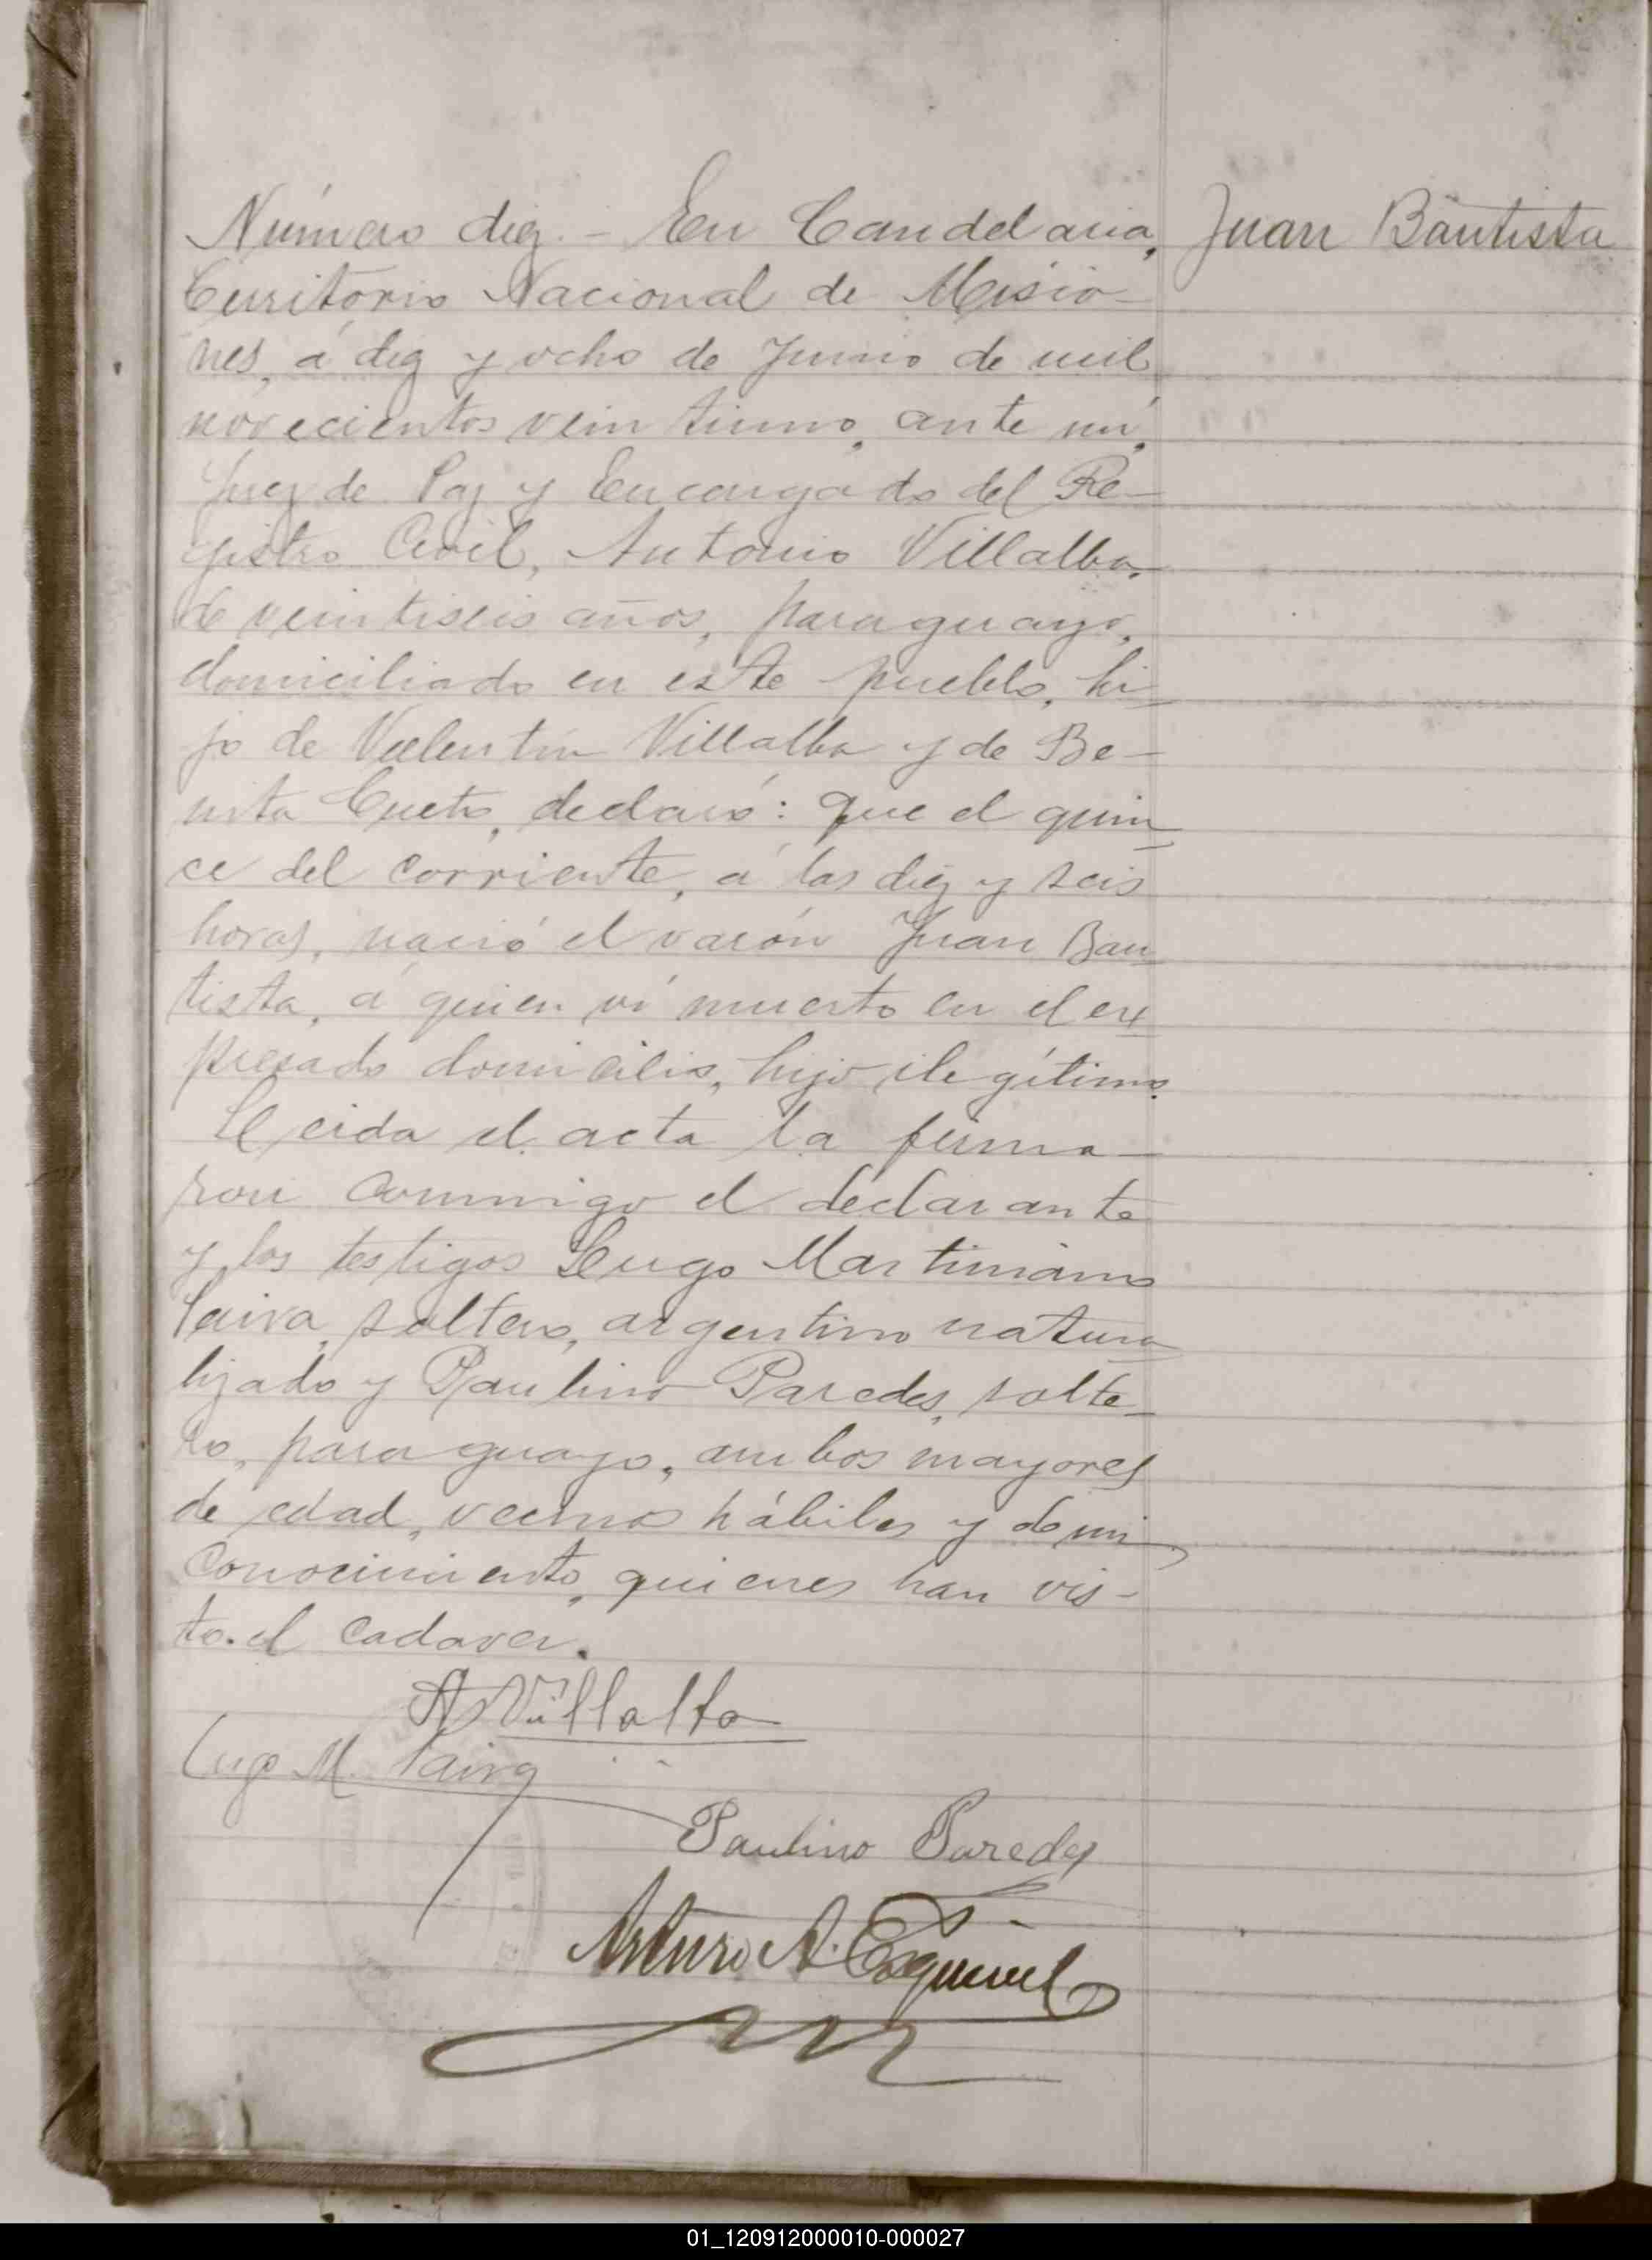 Número diez.- En Candelaria,
Juan Bautista
Territorio Nacional de Misio-
nes, á diez y ocho de Junio de mil
novecientos veintiuno, ante mí,
Juez de Paz y Encargado del Re-
gistro Civil, Antonio Villalba,
de veintiseis años, paraguayo,
domiciliado en este pueblo, hi-
jo de Valentín Villalba y de Be-
nita Cueto, declaró: que el quin-
ce del corriente, á las diez y seis
horas, nació el varón Juan Bau-
tista, á quien ví muerto en el ex-
presado domicilio, hijo ilegítimo.
Leida el acta la firma-
ron conmigo el declarante
y los testigos Lugo Martiniano
Paiva, soltero, argentino natura-
lizado y Paulino Paredes, solte-
ro, paraguayo, ambos mayores
de edad, vecinos hábiles y de mi
conocimiento, quienes han vis-
to el cadaver.
A Villalba
Lugo M. Paiva
Paulino Paredes
Arturo A. Esquivel
01_120912000010-000027